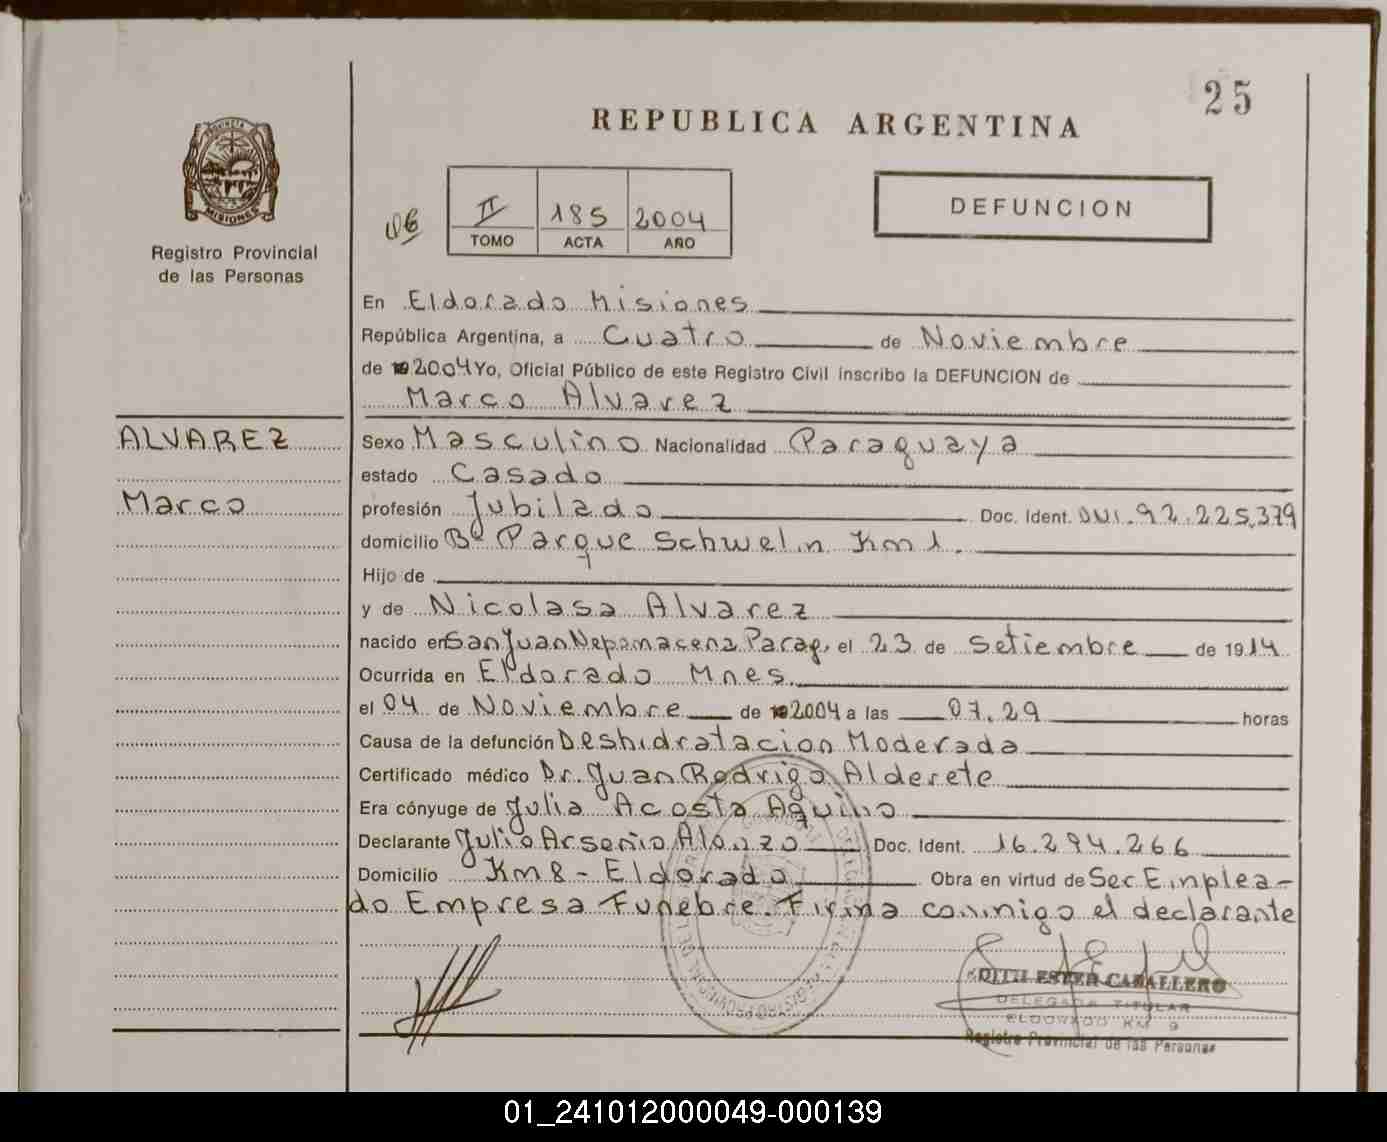 25
REPUBLICA ARGENTINA
PROVINCIA
MISIONES
Registro Provincial
de las Personas
06
II 185 2004
TOMO ACTA AÑO
DEFUNCION
En Eldorado Misiones
República Argentina, a Cuatro de Noviembre
de 2004 Yo, Oficial Público de este Registro Civil inscribo la DEFUNCION de
Marco Alvarez
ALVAREZ
Marco
Sexo Masculino Nacionalidad Paraguaya
estado Casado
profesión Jubilado Doc. Ident. DNI. 92.225.379
domicilio Bº Parque Schwelm Km 1.
Hijo de
y de Nicolasa Alvarez
nacido en San Juan Nepomacena Parag, el 23 de Setiembre de 1914
Ocurrida en Eldorado Mnes.
el 04 de Noviembre de 2004 a las 07.29 horas
Causa de la defunción Deshidratacion Moderada
Certificado médico Dr. Juan Rodrigo Alderete
Era cónyuge de Julia Acosta Aquino
Declarante Julio Arsenio Alonzo Doc. Ident. 16.294.266
Domicilio Km 8 - Eldorado Obra en virtud de Ser Emplea-
do Empresa Funebre. Firma conmigo el declarante
EDITH ESTER CABALLERO
DELEGADA TITULAR
ELDORADO KM 9
Registro Provincial de las Personas
01_241012000049-000139